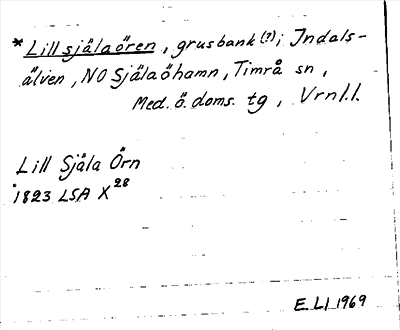 * Lillsjälaören, grusbank (?) i Indals-
älven, NO Själaöhamn, Timrå sn,
Med. ö. doms. tg, Vrnl.l.
Lill Själa Örn
1823 LSA X 28
E LI 1969